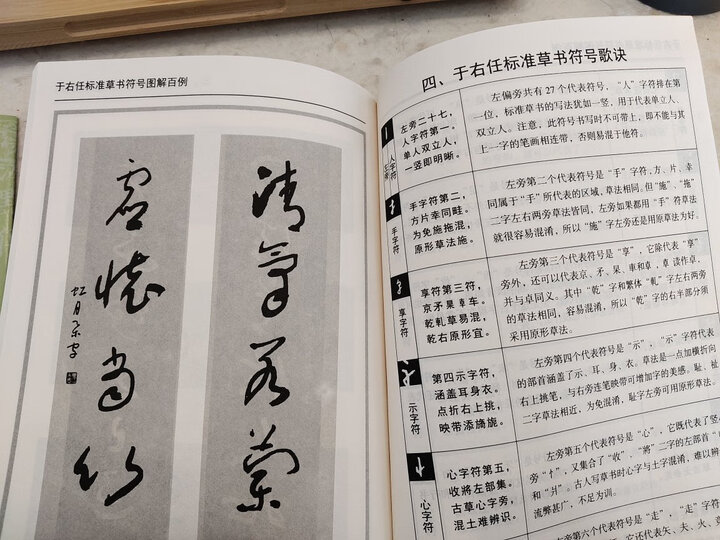 于右任标准草书符号图解百例
清氣若蘭
虚懷當竹
四、于右任标准草书符号歌诀
人字符
左旁二十七，
人字符第一。
单人双立人，
一竖即明晰。
左偏旁共有 27 个代表符号，“人”字符排在第
一位，标准草书的写法犹如一竖，用于代表单立人、
双立人。注意，此符号书写时不可带上，即不能与其
上一字的笔画相连带，否则易混于他符。
手字符
手字符第二，
方片幸同畦。
为免施拖混，
原形草法施。
左旁第二个代表符号是“手”字符，方、片、幸
同属于“手”所代表的区域，草法相同。但“施”、“拖”
二字左右两旁草法皆同，左旁如果都用“手”符草法
就很容易混淆，所以“施”字左旁还是用原草法为好。
享字符
享符第三符，
京矛果阜车。
乾軋草易混，
乾右原形宜。
左旁第三个代表符号是“享”，它除代表“享”
旁外，还可以代表京、矛、果、車和卓，卓 读作卓，
并与卓同义。其中“軋”字和繁体“乾”字左右两旁
的草法相同，容易混淆，所以“乾”字的右半部分须
采用原形草法。
示字符
第四示字符，
涵盖耳身衣。
点折右上挑，
映带添旖旎。
左旁第四个代表符号是“示”，“示”字符代表
的部首涵盖了示、耳、身、衣。草法是一点加横折向
右上挑笔，与右旁连笔映带可增加字的美感。耻、祉
二字草法相近，为免混淆，耻字左旁可用原形草法。
心字符
心字符第五，
收將左部集。
古草心字旁，
混土难辨识。
左旁第五个代表符号是“心”，它既代表了竖心
旁“忄”，又集合了“收”、“將”二字的左部首“丩”
和“爿”。古人写草书时心字与土字混淆，难以辨
流弊甚广，不足为训。
左旁第六个代表符号是“走”，“走”字符